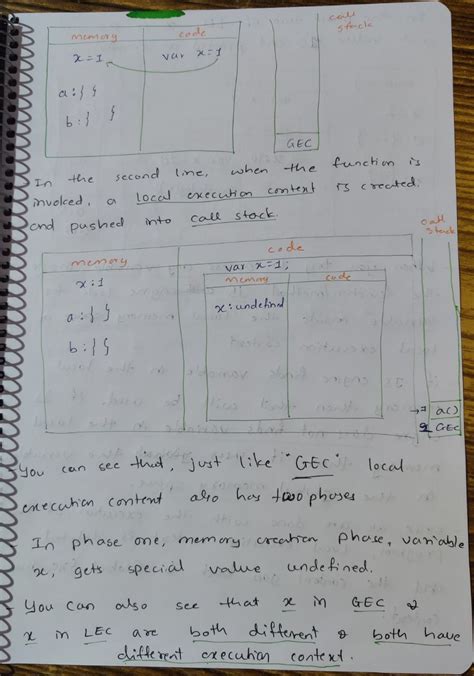 call
stack
memory code
x=1 var x=1
a:{ }
b:{ }
GEC
In the second line, when the function is
invoked, a local execution context is created.
and pushed into call stack.
call
stack
memory code
var x=1;
x:1 memory code
x:undefined
a:{ }
b:{ }
a()
GEC
You can see that, just like "GEC" local
execution content also has two phases
In phase one, memory creation phase, variable
x, gets special value undefined.
You can also see that x in GEC &
x in LEC are both different & both have
different execution context.